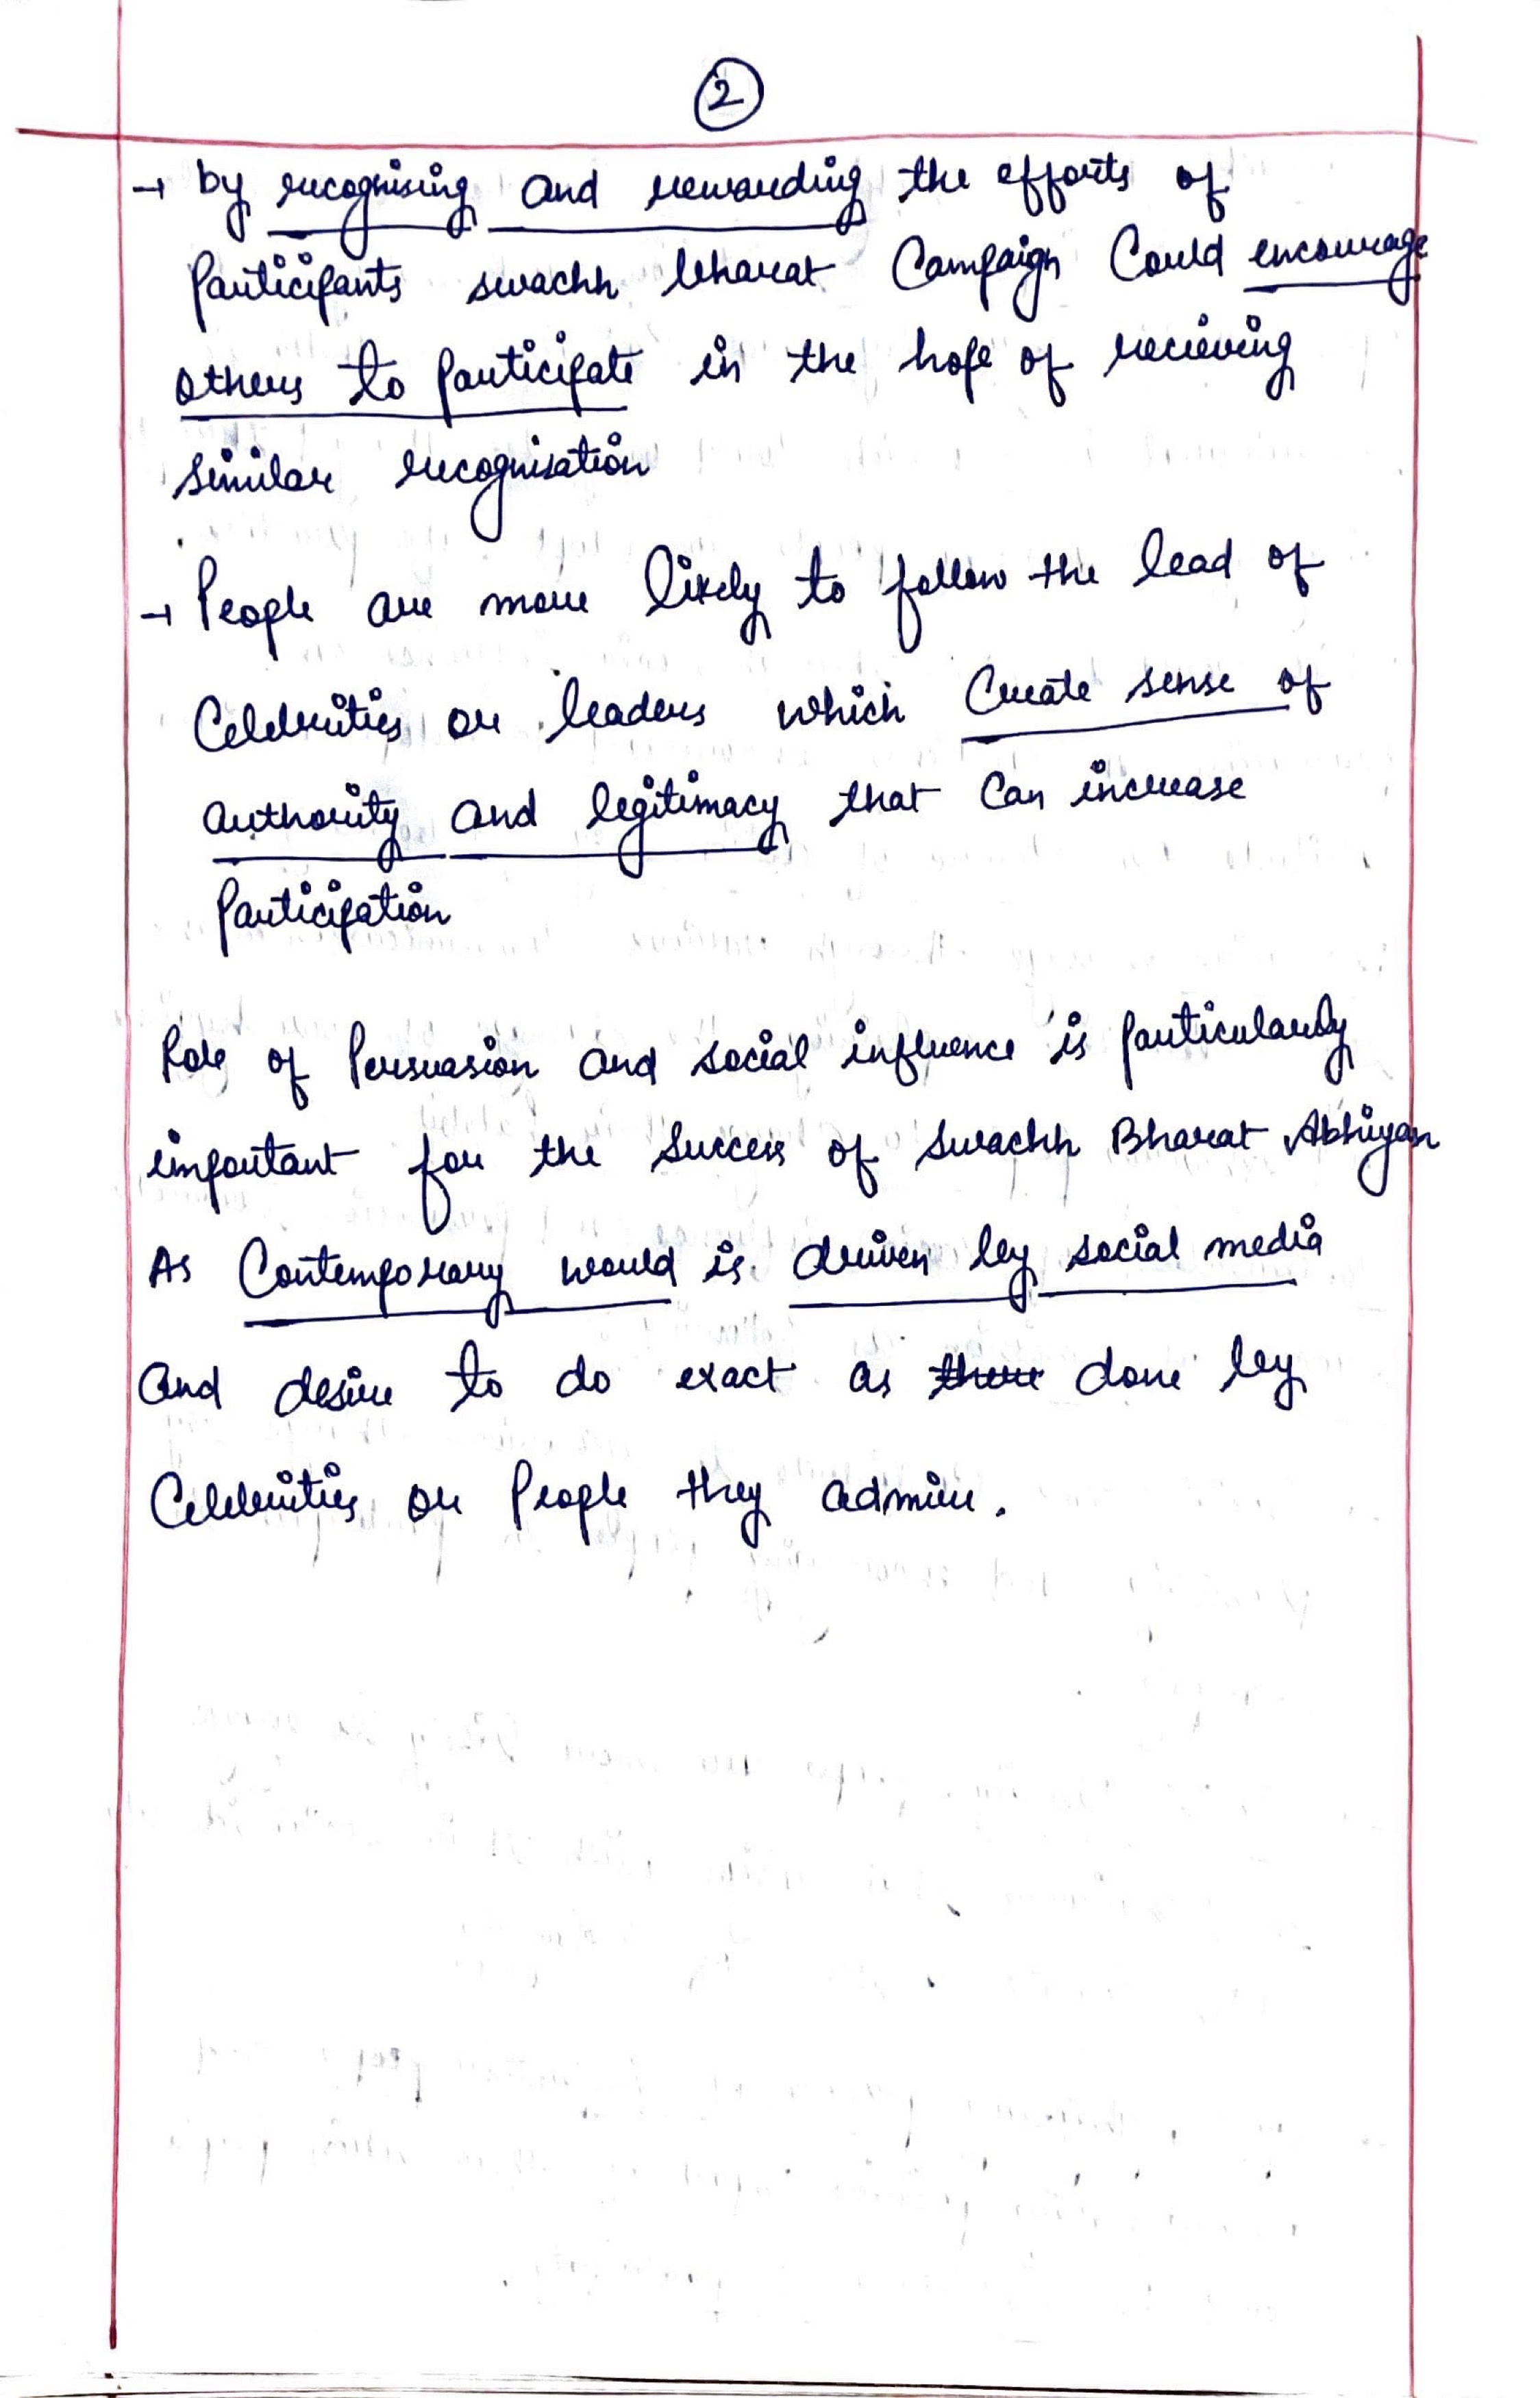 2
→ by recognising and rewarding the efforts of
Participants swachh bharat Campaign Could encourage
others to participate in the hope of recieving
similar recognisation
→ People are more likely to follow the lead of
Celebrities or leaders which Create sense of
authority and legitimacy that Can increase
Participation
Role of Persuasion and social influence is particularly
important for the Success of Swachh Bharat Abhiyan
As Contemporary world is driven by social media
and desire to do exact as done by
Celebrities or People they admire.